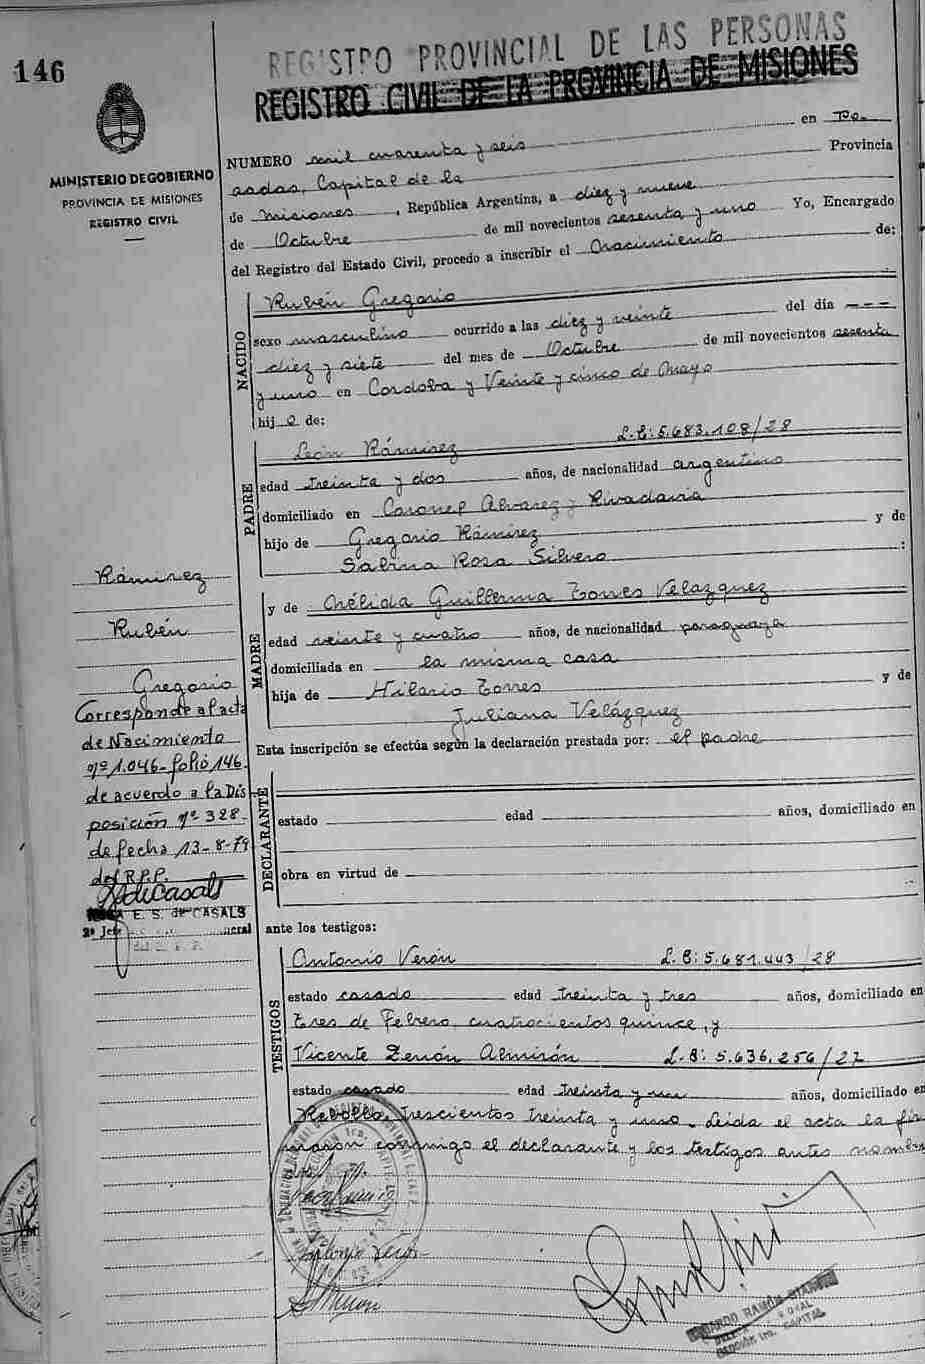 146
REGISTRO PROVINCIAL DE LAS PERSONAS
REGISTRO CIVIL DE LA PROVINCIA DE MISIONES
MINISTERIO DE GOBIERNO
PROVINCIA DE MISIONES
REGISTRO CIVIL
NUMERO mil cuarenta y seis en Po-
sadas, Capital de la Provincia
de Misiones, República Argentina, a diez y nueve
de Octubre de mil novecientos sesenta y uno Yo, Encargado
del Registro del Estado Civil, procedo a inscribir el Nacimiento de:
NACIDO
Rubén Gregorio
sexo masculino ocurrido a las diez y veinte del día ---
diez y siete del mes de Octubre de mil novecientos sesenta
y uno en Cordoba y Veinte y cinco de Mayo
hijo de:
PADRE
León Rámirez L.E: 5.683.108/28
edad treinta y dos años, de nacionalidad argentino
domiciliado en Coronel Alvarez y Rivadavia
hijo de Gregorio Rámirez y de
Sabina Rosa Silvero :
MADRE
y de Nélida Guillerma Torres Velazquez
edad veinte y cuatro años, de nacionalidad paraguaya
domiciliada en la misma casa
hija de Hilario Torres y de
Juliana Velázquez
Esta inscripción se efectúa según la declaración prestada por: el padre
DECLARANTE
estado edad años, domiciliado en
obra en virtud de
ante los testigos:
TESTIGOS
Antonio Verón L.E: 5.681.443/28
estado casado edad treinta y tres años, domiciliado en
Tres de Febrero, cuatrocientos quince, y
Vicente Zenón Almirón L.E: 5.636.256/27
estado casado edad treinta y un años, domiciliado en
Rebollo, trescientos treinta y uno. Leida el acta la fir
maron conmigo el declarante y los testigos antes nombra
Rámirez
Rubén
Gregorio
Corresponde al acta
de Nacimiento
nº 1.046-folio 146.
de acuerdo a la Dis
posición nº 328.
de fecha 13-8-79
del R.P.P.
E. S. de CASALS
2ª Jefe
Antonio Verón
RAMÓN
CAPITAL